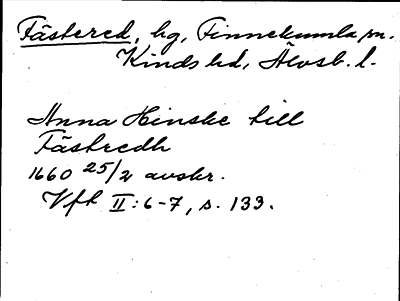 Fästered, hg, Finnekumla sn.
Kinds hd, Älvsb. l.
Anna Hinske till
Fästredh
1660 25/2 avskr.
Vft II: 6-7, s. 133.